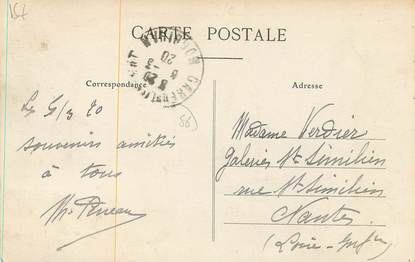 157
CARTE POSTALE
Correspondance
Adresse
MORBIHAN
20
Le 6/3 20
souvenirs amitiés
à tous
Madame Verdier
Galeries St Similien
rue St Similien
Nantes
(Loire-Infre)